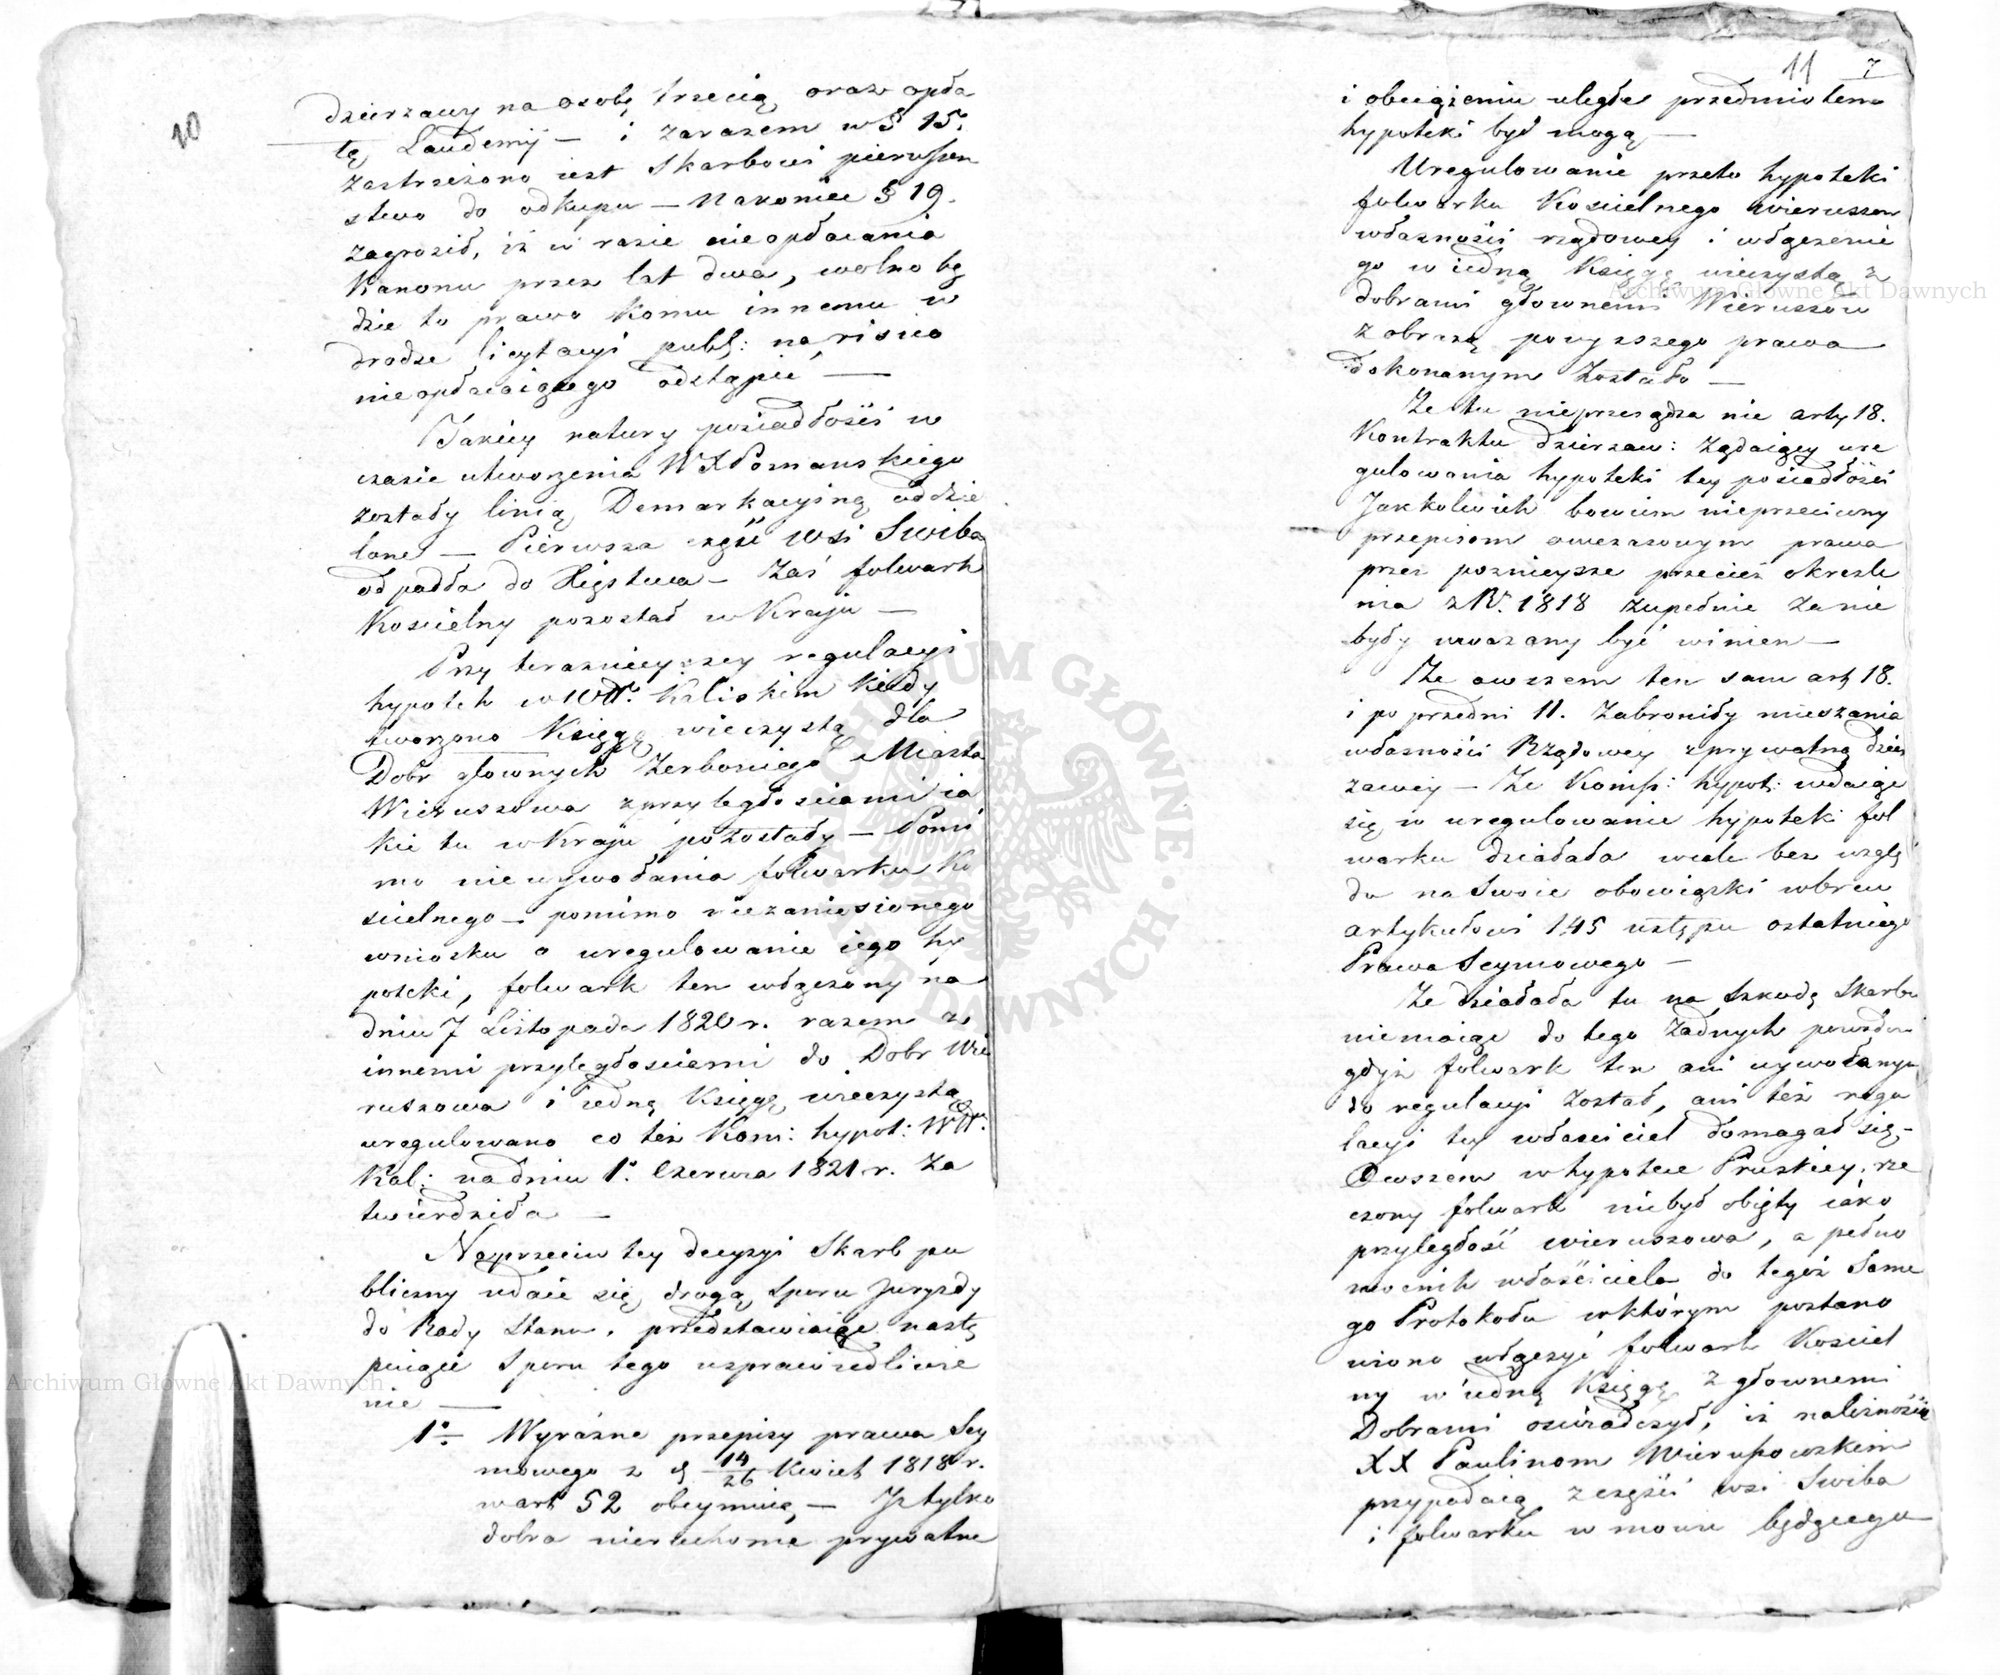 10
dzierzawy na osobę trzecią oraz opła
tę Laudemij — i zarazem w § 15.
zastrzeżono iest Skarbowi pierwszen
stwo do odkupu — Nakoniec § 19.
zagroził, iż w razie nieopłacania
Kanonu przez lat dwa, wolno bę
dzie to prawo komu innemu w
drodze licytacyi publ: na risico
nieopłacaiącego odstąpić —
Takiey natury posiadłości w
czasie utworzenia W X Poznanskiego
zostały linią Demarkacyiną oddzie
lone — Pierwsza część Wsi Swiba
odpadła do Xięstwa — Zaś folwark
Kościelny pozostał w Kraju —
Przy teraznieyszey regulacyi
hypotek w Wdt. Kaliskim kiedy
tworzono Księgę wieczystą dla
Dobr głownych Zerboniego Miasta
Wieruszowa z przyległościami ia
kie tu w Kraju pozostały — Pomi
mo niewywołania folwarku Ko
scielnego — pomimo niezaniesionego
wniosku o uregulowanie iego hy
poteki, folwark ten włączony na
dniu 7 Listopada 1820 r. razem z
innemi przyległościami do Dobr Wie
ruszowa i iedną Księgę wieczystą
uregulowano co też Kom: hypot: Wdt.
Kal: na dniu 1. Czerwca 1821 r. za
twierdziła —
Naprzeciw tey decyzyi Skarb pu
bliczny udaie się drogą Sporu Juryzdy
do Rady Stanu. przedstawiaiąc nastę
puiące Sporu tego usprawiedliwie
nie —
1° Wyraźne przepisy prawa Sey
mowego z d 14/26 Kwiet 1818 r.
w art 52 obeymuią — Iż tylko
dobra nieruchome prywatne
11 7
i obciążeniu uległe przedmiotem
hypoteki być mogą —
Uregulowanie przeto hypoteki
folwarku Koscielnego Wieruszow
własności rządowey i włączenie
go w iedną Księgę wieczystą z
dobrami głownemi Wieruszow
z obrazą powyższego prawa
dokonanym zostało —
Że tu nieprzesądza nic arty 18.
Kontraktu dzierzaw: żądaiący ure
gulowania hypoteki tey posiadłości
Jakkolwiek bowiem nieprzeciwny
przepisom owczasowym prawa
przez poznieysze przecież określe
nia z R. 1818 zupełnie za nie
były uważany być winien —
Że owszem ten sam art 18.
i poprzedni 11. zabroniły mieszania
własności Rządowey z prywatną dzier
zawcy — Że Komiss: hypot: wdaiąc
się w uregulowanie hypoteki fol
warku działała wcale bez wzglę
du na Swoie obowiązki wbrew
artykułowi 145 ustępu ostatniego
Prawa Seymowego —
Że działała tu na szkodę Skarbu
niemaiąc do tego żadnych powodów
gdyż folwark ten ani wywołanym
do regulacyi został, ani też regu
lacyi tey właściciel domagał się —
Owszem w hypotece Pruskiey, rze
czony folwark niebył obięty iako
przyległość Wieruszowa, a pełno
mocnik właściciela do tegoż Same
go Protokołu w którym postano
wiono włączyć folwark Kościel
ny w iedną Księgę z głownemi
Dobrami oświadczył, iż należności
XX Paulinom Wieruszowskim
przypadaią z części wsi Swiba
i folwarku w mowie będącego
Archiwum Główne Akt Dawnych
Archiwum Główne Akt Dawnych
ARCHIWUM GŁÓWNE AKT DAWNYCH